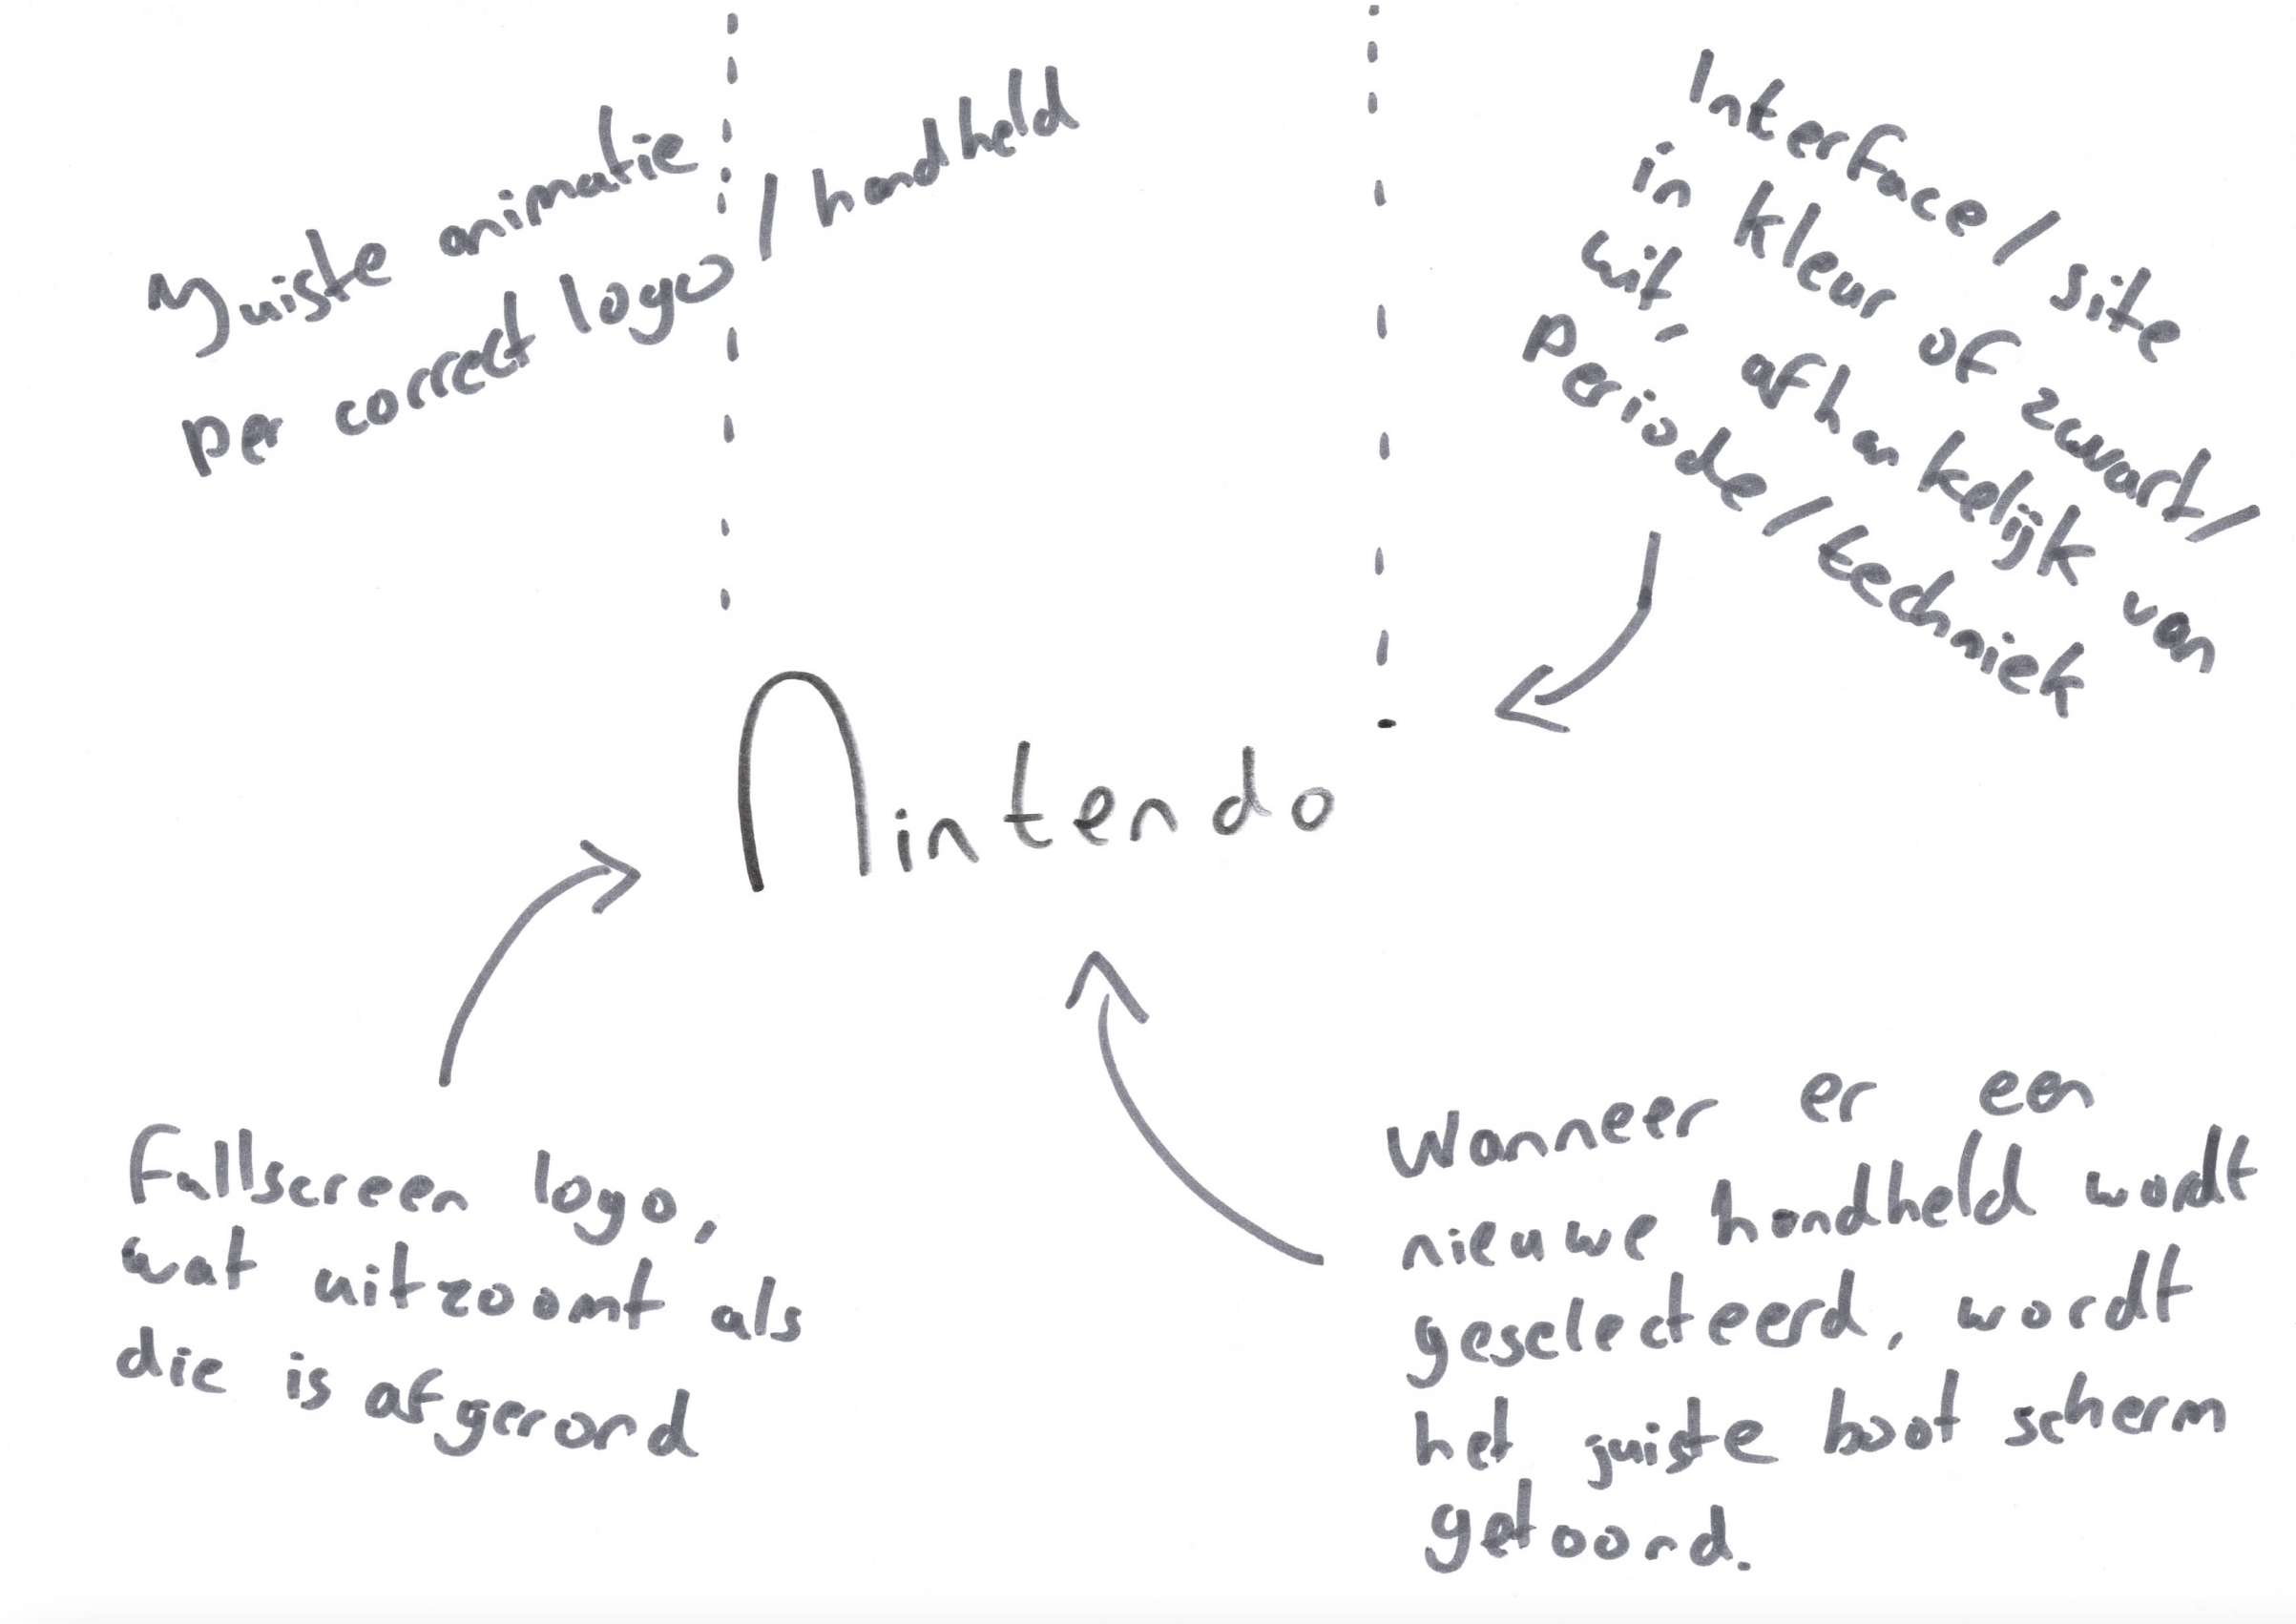 Juiste animatie
per correct logo / handheld
Interface / site
in kleur of zwart/
wit, afhankelijk van
periode / techniek
Nintendo
Fullscreen logo,
wat uitzoomt als
die is afgerond
Wanneer er een
nieuwe handheld wordt
geselecteerd, wordt
het juiste boot scherm
getoond.